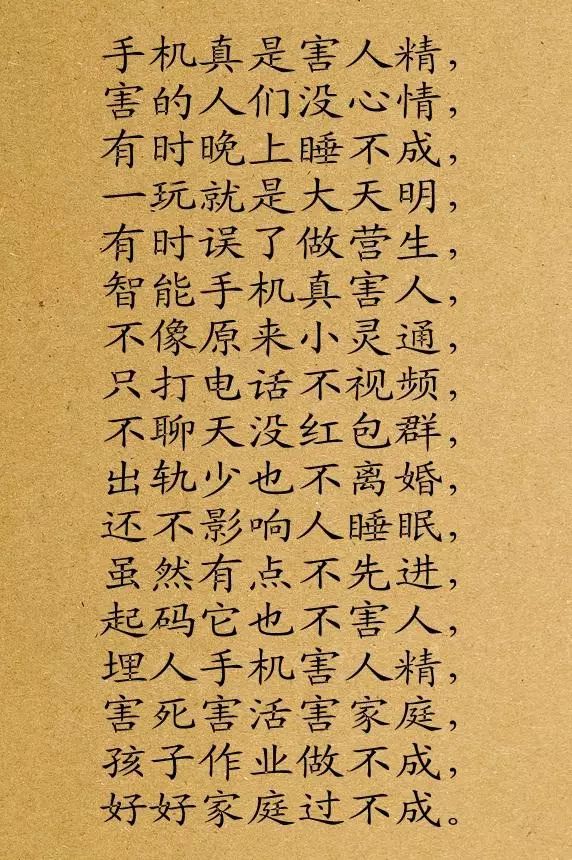 手机真是害人精，
害的人们没心情，
有时晚上睡不成，
一玩就是大天明，
有时误了做营生，
智能手机真害人，
不像原来小灵通，
只打电话不视频，
不聊天没红包群，
出轨少也不离婚，
还不影响人睡眠，
虽然有点不先进，
起码它也不害人，
埋人手机害人精，
害死害活害家庭，
孩子作业做不成，
好好家庭过不成。